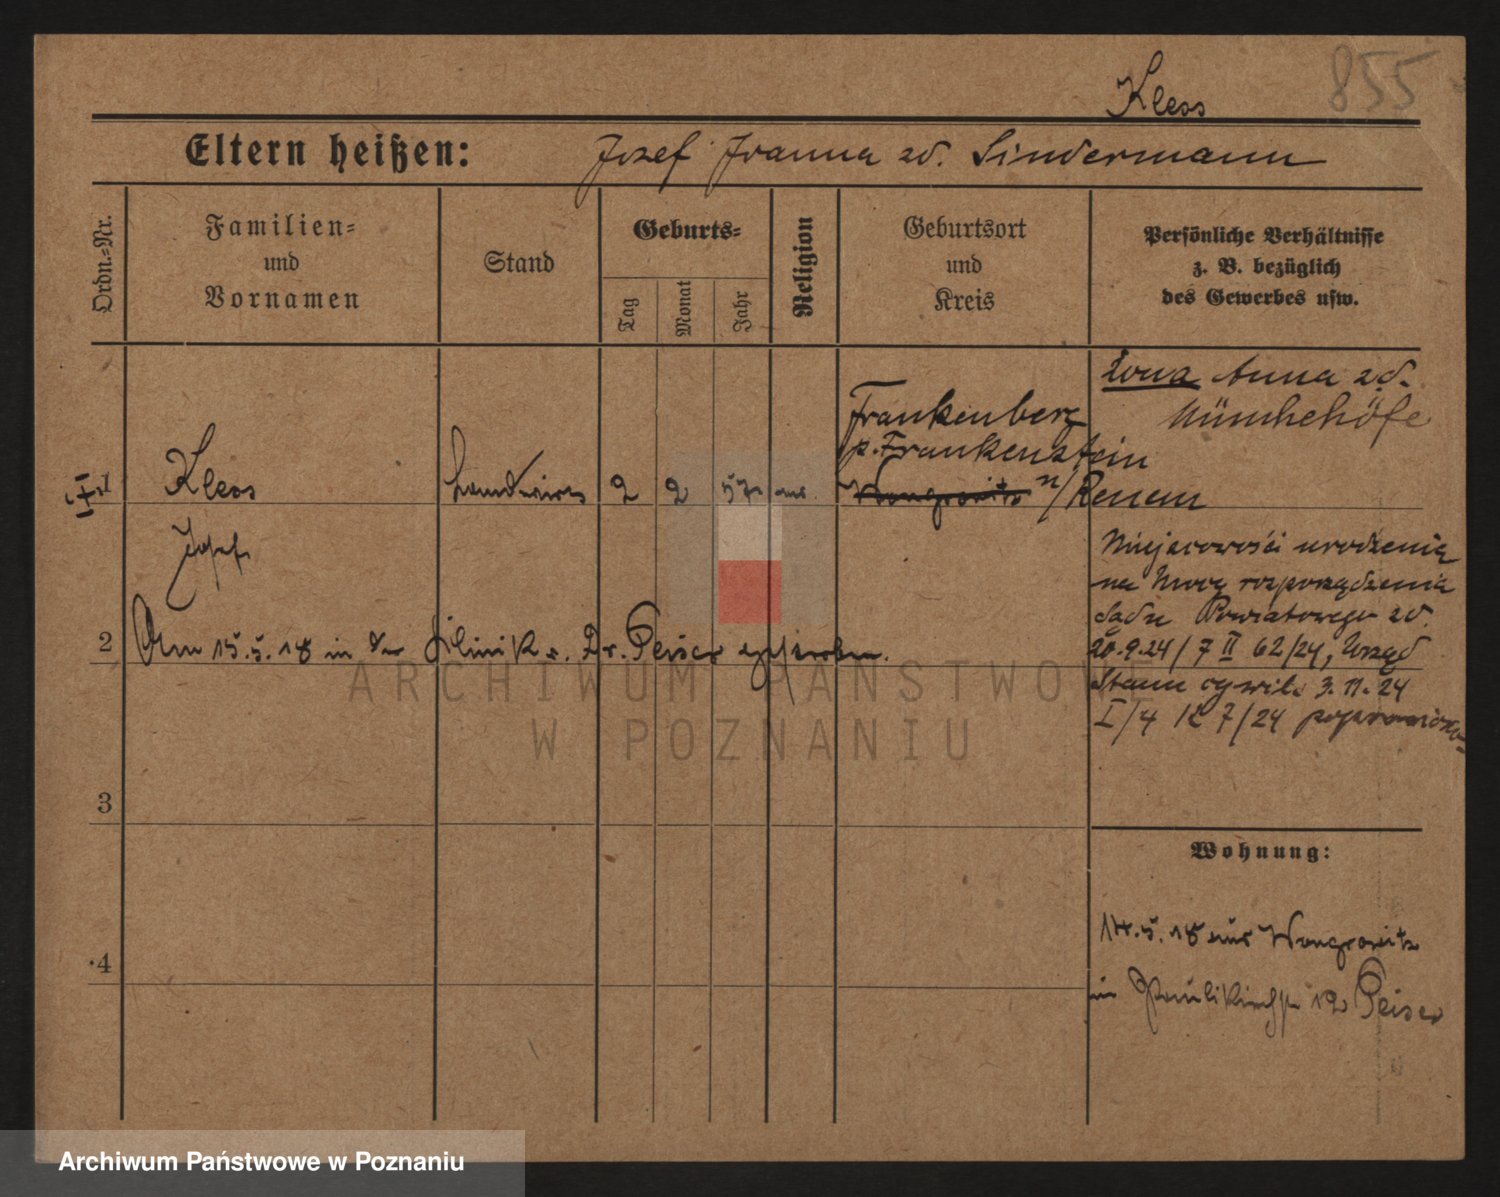 855
Kleos
Eltern heißen: Josef Joanna zd. Sindermann
Ordn.-Nr.
Familien-
und
Vornamen
Stand
Geburts-
Tag
Monat
Jahr
Religion
Geburtsort
und
Kreis
Persönliche Verhältnisse
z. B. bezüglich
des Gewerbes usw.
Żona Anna zd.
Frankenberg
p. Frankenstein
1
Kleos
Landwirt
2
2
57
Wongrowitz
n/
Josef
Miejscowość urodzenia
na mocy rozporządzenia
Sądu Powiatowego zd.
20.9.24/7 II 62/24, Urząd
Stanu cywil. 3.11.24
I/4 K 7/24
2
Am 15.5.18 in der Klinik v. Dr. Peiser
3
Wohnung:
14.5.18 aus Wongrowitz
in Paulikirchstr 12 Peiser
4
ARCHIWUM PAŃSTWOWE
W POZNANIU
Archiwum Państwowe w Poznaniu